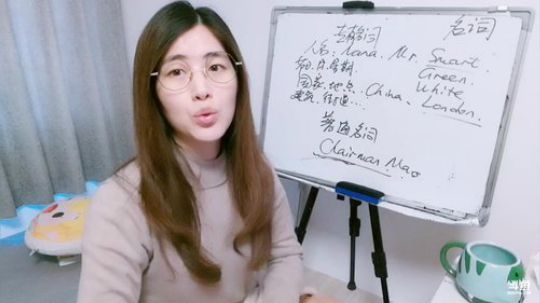 名词
专有名词
人名: Nana. Mr. Smart.
Green.
星期
White
国家. 地点. China. London.
建筑. 街道...
普通名词
Chairman Mao